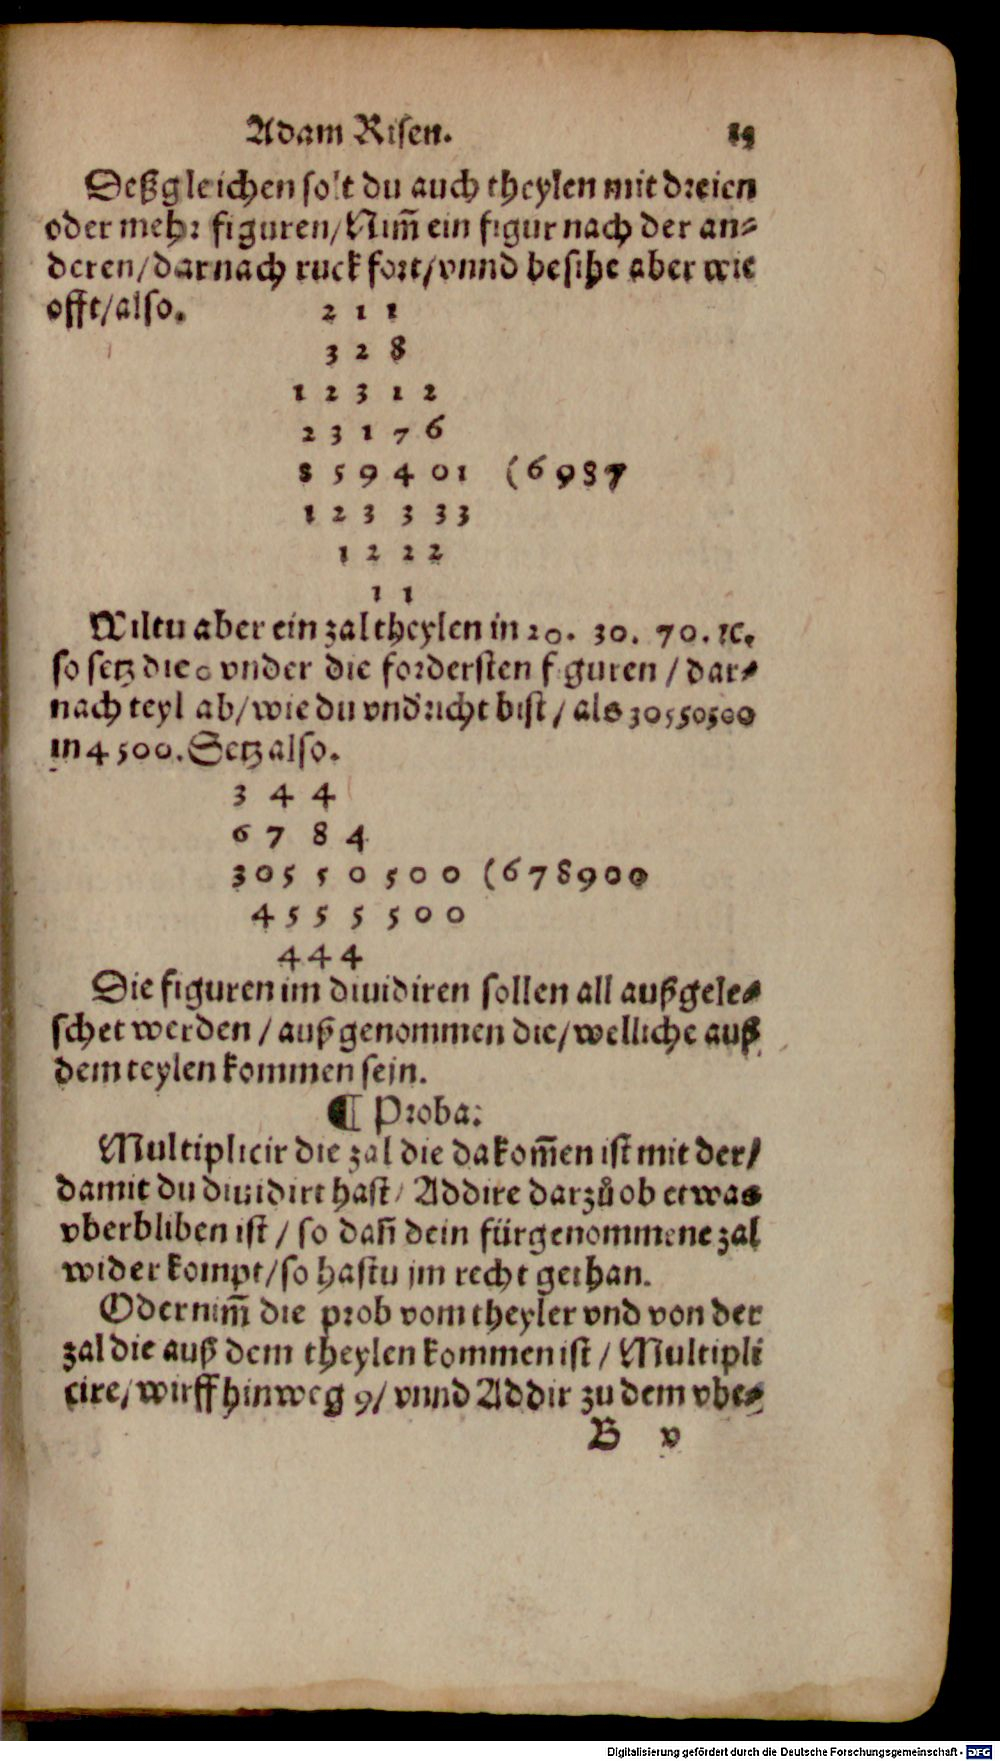 Adam Risen. 15
Deßgleichen solt du auch theylen mit dreien
oder mehr figuren/Nim̃ ein figur nach der an⸗
deren/darnach ruck fort/vnnd besihe aber wie
offt/also. 2 1 1
3 2 8
1 2 3 1 2
2 3 1 7 6
8 5 9 4 0 1 (6 9 8 7
1 2 3 3 3 3
1 2 2 2
1 1
Wiltu aber ein zal theylen in 20. 30. 70. ꝛc.
so setz die 0 vnder die fordersten figuren / dar⸗
nach teyl ab/wie du vnd'richt bist / als 30550500
in 4500. Setz also.
3 4 4
6 7 8 4
3 0 5 5 0 5 0 0 (6 7 8 9 0 0
4 5 5 5 5 0 0
4 4 4
Die figuren im diuidiren sollen all außgele⸗
schet werden / außgenommen die/welliche auß
dem teylen kommen sein.
¶ Proba:
Multiplicir die zal die da kom̃en ist mit der/
damit du diuidirt hast/ Addire darzů ob etwas
vberbliben ist / so dañ dein fürgenommene zal
wider kompt/so hastu jm recht gethan.
Oder nim̃ die prob vom theyler vnd von der
zal die auß dem theylen kommen ist / Multipli
cire/ wirff hinweg 9/ vnnd Addir zu dem vbe⸗
B v
Digitalisierung gefördert durch die Deutsche Forschungsgemeinschaft - DFG